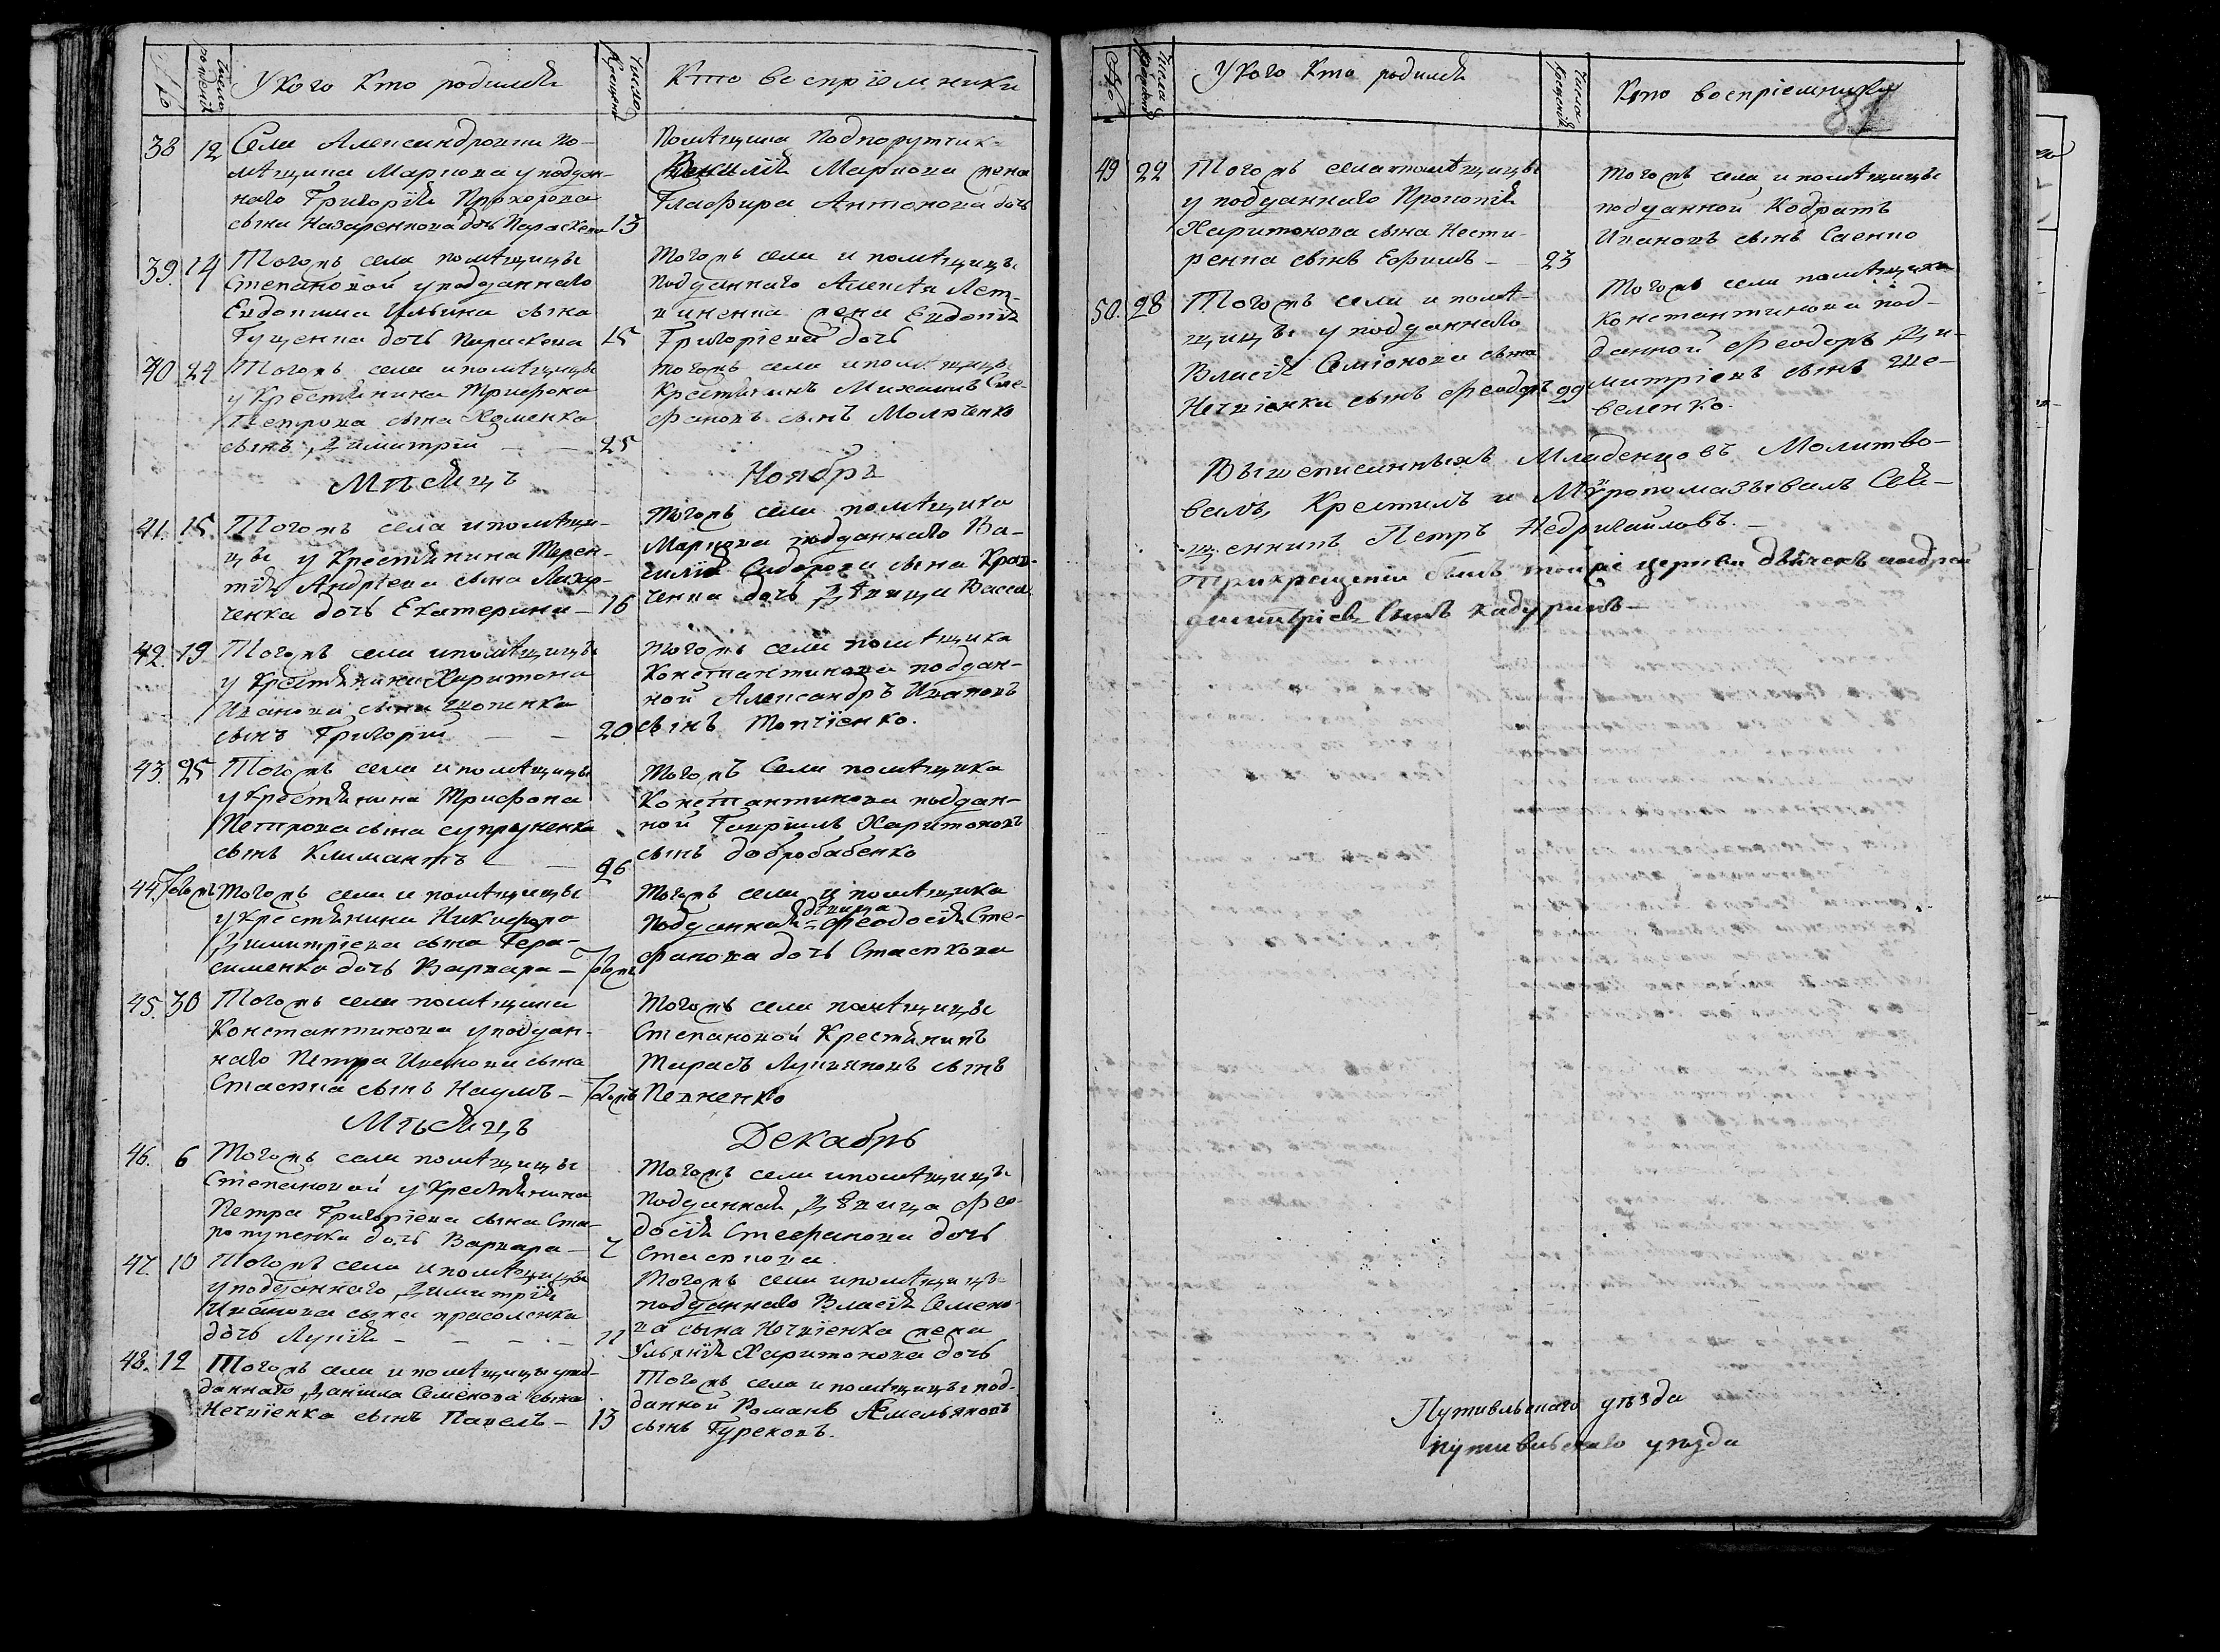 №
Число рожденія
У кого кто родился
Число крещенія
Кто воспріемники
38 12 Села Александровки по-
мѣщика Маркова у поддан-
наго Григорія Прохорова
сына Назаренкова дочь Параскева 13
Помѣщика Подпорутчик-
Василія Маркова жена
Глафира Антонова дочь
39. 14 Тогожъ села помѣщицы
Степановой у подданнаго
Евдокима Ильина сына
Гущенка дочь Параскева 15
Тогожъ села и помѣщицы
подданнаго Алексѣя
жена Евдокія
Григоріева дочь
40 24 Тогожъ села и помѣщицы
у Крестянина Трифона
Петрова сына Хоменка
сынъ Димитрій — — 25
Тогожъ села и помѣщицы
Крестянинъ Михаилъ Сте-
фановъ сынъ Молюченко
Мѣсяцъ Ноябрь
41. 15. Тогожъ села и помѣщи-
цы у Крестянина Терен-
тія Андрѣева сына Лазар-
ченка дочь Екатерина — 16
Тогожъ села помѣщика
Маркова подданнаго Ва-
силія Сидорова сына Крав-
ченка дочь Дѣвица Васса
42. 19 Тогожъ села и помѣщицы
у Крестянина Харитона
Иванова сына Шопенка
сынъ Григорій — — 20.
Тогожъ села помѣщика
Константинова поддан-
ной Александръ Ивановъ
сынъ Топчіенко.
43. 25 Тогожъ села и помѣщицы
у Крестянина Трифона
Петрова сына супруненка
сынъ Климантъ — — 26
Тогожъ Села помѣщика
Константинова поддан-
ной Гавріилъ Харитоновъ
сынъ добробабенко
44. Тогожъ Тогожъ села и помѣщицы
у крестянина Никифора
Димитріева сына Гера-
сименка дочь Варвара — Тогожъ
Тогожъ села и помѣщика
подданная дѣвица Феодосія Сте-
фанова дочь Стаснкова
45. 30 Тогожъ села помѣщика
Константинова у поддан-
наго Петра Иванова сына
сынъ Наумъ — Тогожъ
Тогожъ села помѣщицы
Степановой Крестянинъ
Тарасъ Лукяновъ сынъ
Певненко
Мѣсяцъ Декабрь
46. 6 Тогожъ села помѣщицы
Степановой у Крестянина
Петра Григоріева сына Ста-
ропупенка дочь Варвара — 7
Тогожъ села и помѣщицы
Подданная Дѣвица Фео-
досія Стефанова дочь
47. 10 Тогожъ села и помѣщицы
у подданнаго Димитрія
Иванова сына прасоленка
дочь Лукія — — — — 11
Тогожъ села и помѣщицы
подданнаго Власія Семено-
ва сына Нечвіенка жена
Ульянія Харитонова дочь
48. 12 Тогожъ села и помѣщицы у под-
даннаго Даніила Семенова сына
Нечвіенка сынъ Павелъ — 13
Тогожъ села и помѣщицы под-
данной Романъ Амельяновъ
сынъ Гурековъ.
№
Числа рожденія
У кого кто родился
Число крещенія
Кто воспріемники
81
49 22 Тогожъ села помѣщицы
у подданнаго Прокопія
Харитонова сына Несте-
ренка сынъ Ефимъ — 23
Тогожъ села и помѣщицы
подданной Кодратъ
Ивановъ сынъ Саенко
50. 28 Тогожъ села и помѣ-
щицы у подданнаго
Власія Семіонова сына
Нечвіенка сынъ Феодоръ 29
Тогожъ села помѣщика
Константинова под-
данной Феодоръ Ди-
митріевъ сынъ Ше-
веленко.
Вышеписанныхъ Младенцовъ Молитво-
валъ, Крестилъ и Мѵропомазывалъ Свя-
щенникъ Петръ Недригайловъ. —
При крещеніи былъ тойже церкви дьячекъ андрей
димитріевъ сынъ кадуринъ —
Путивльскаго уѣзда
путивльскаго уѣзда